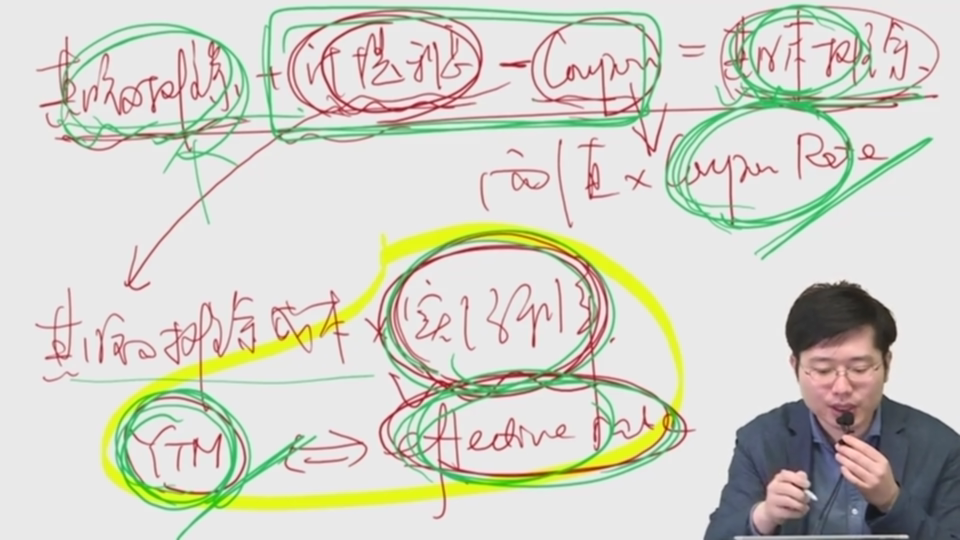 期初摊余 + 计提利息 - Coupon = 期末摊余
面值 × Coupon Rate
期初摊余成本 × 实际利
YTM ⇔ effective Rate